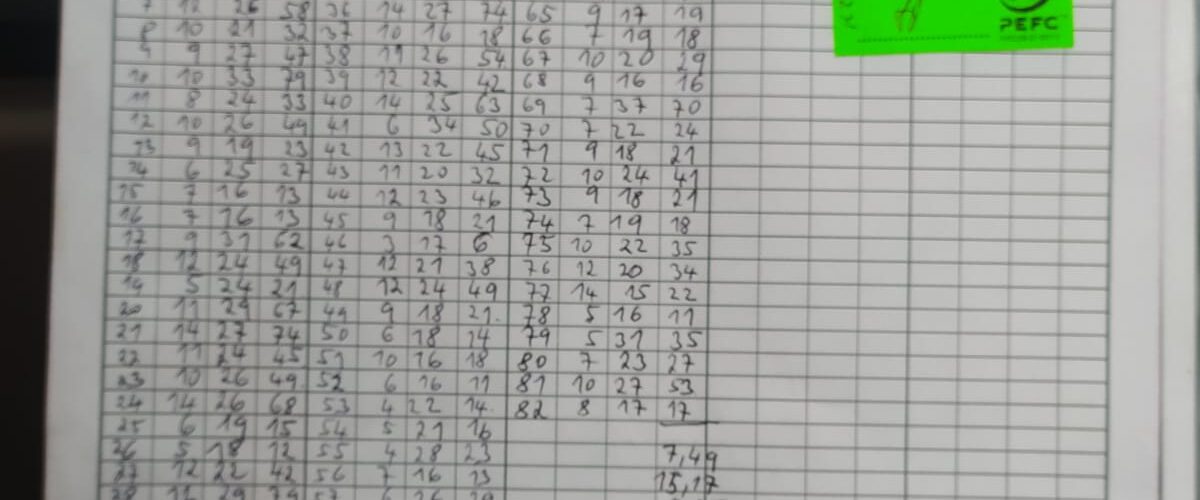 7 12 26 58 36 14 27 74 65 9 17 19
8 10 21 32 37 10 16 18 66 7 19 18
9 9 27 47 38 11 26 54 67 10 20 29
10 10 33 79 39 12 22 42 68 9 16 16
11 8 24 33 40 14 25 63 69 7 37 70
12 10 26 49 41 6 34 50 70 7 22 24
13 9 19 23 42 13 22 45 71 9 18 21
14 6 25 27 43 11 20 32 72 10 24 41
15 7 16 13 44 12 23 46 73 9 18 21
16 7 16 13 45 9 18 21 74 7 19 18
17 9 31 62 46 3 17 6 75 10 22 35
18 12 24 49 47 12 21 38 76 12 20 34
19 5 24 21 48 12 24 49 77 14 15 22
20 11 29 67 49 9 18 21. 78 5 16 11
21 14 27 74 50 6 18 14 79 5 31 35
22 11 24 45 51 10 16 18 80 7 23 27
23 10 26 49 52 6 16 11 81 10 27 53
24 14 26 68 53 4 22 14. 82 8 17 17
25 6 19 15 54 5 21 16
26 5 18 12 55 4 28 23 7,49
27 12 22 42 56 7 16 13 15,17
28 29 79 57 6
PEFC